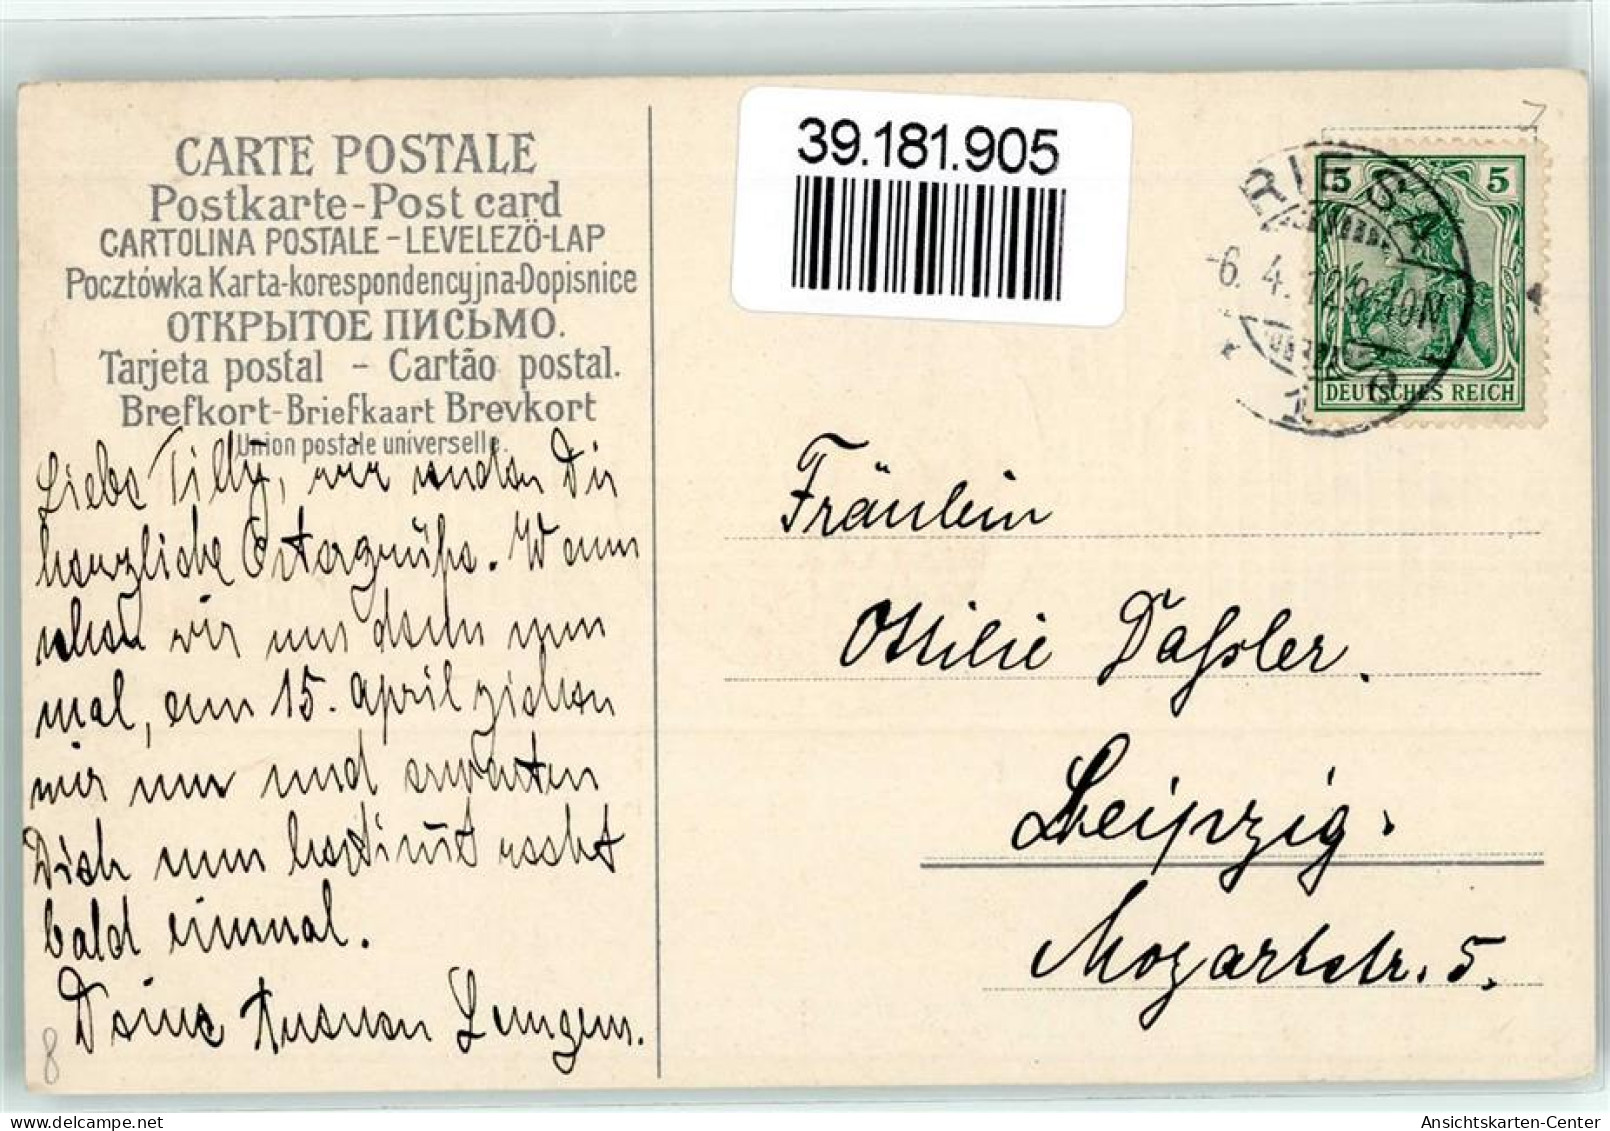 CARTE POSTALE
Postkarte-Post card
CARTOLINA POSTALE-LEVELEZÖ-LAP
Pocztówka Karta-korespondencyjna-Dopisnice
ОТКРЫТОЕ ПИСЬМО.
Tarjeta postal - Cartão postal.
Brefkort-Briefkaart Brevkort
Union postale universelle.
Liebe Tilly, wir senden Dir
herzliche Ostergrüße. Wenn
wir uns dann nun
mal, am 15. April ziehen
wir um und erwarten
Dich nun bestimmt recht
bald einmal.
Deine
39.181.905
RIESA
-6. 4. 12. 9-10N
5 5
DEUTSCHES REICH
Fräulein
Ottilie Daßler.
Leipzig.
Mozartstr. 5.
8
Ansichtskarten-Center